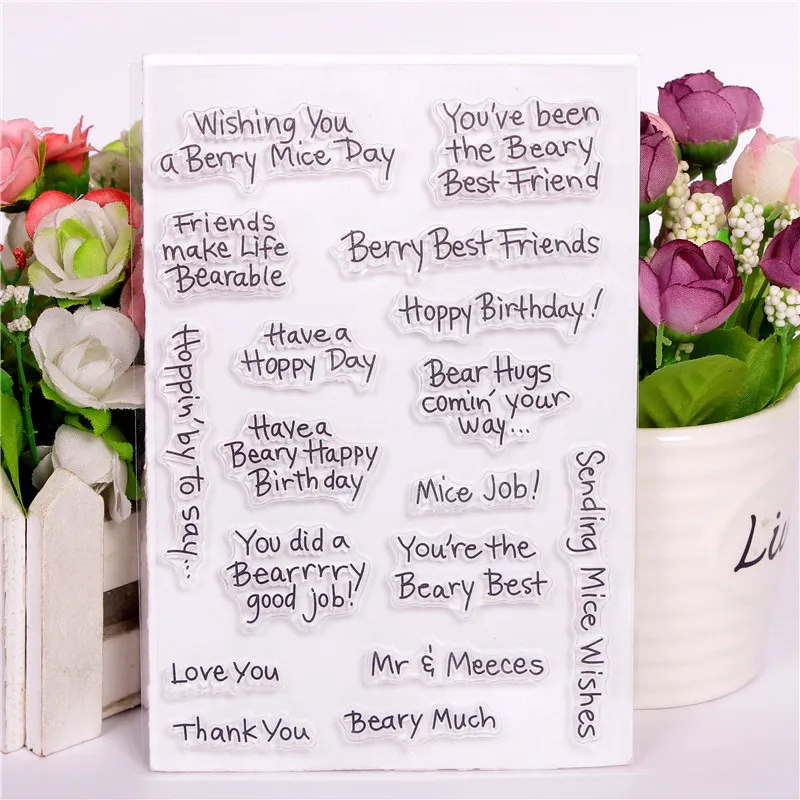 Wishing You
a Berry Mice Day
You've been
the Beary
Best Friend
Friends
make Life
Bearable
Berry Best Friends
Hoppy Birthday!
Have a
Hoppy Day
Bear Hugs
comin' your
way...
Hoppin' by to say...
Have a
Beary Happy
Birthday
Mice Job!
Sending Mice Wishes
You did a
Bearrrry
good job!
You're the
Beary Best
Love You
Mr & Meeces
Thank You
Beary Much